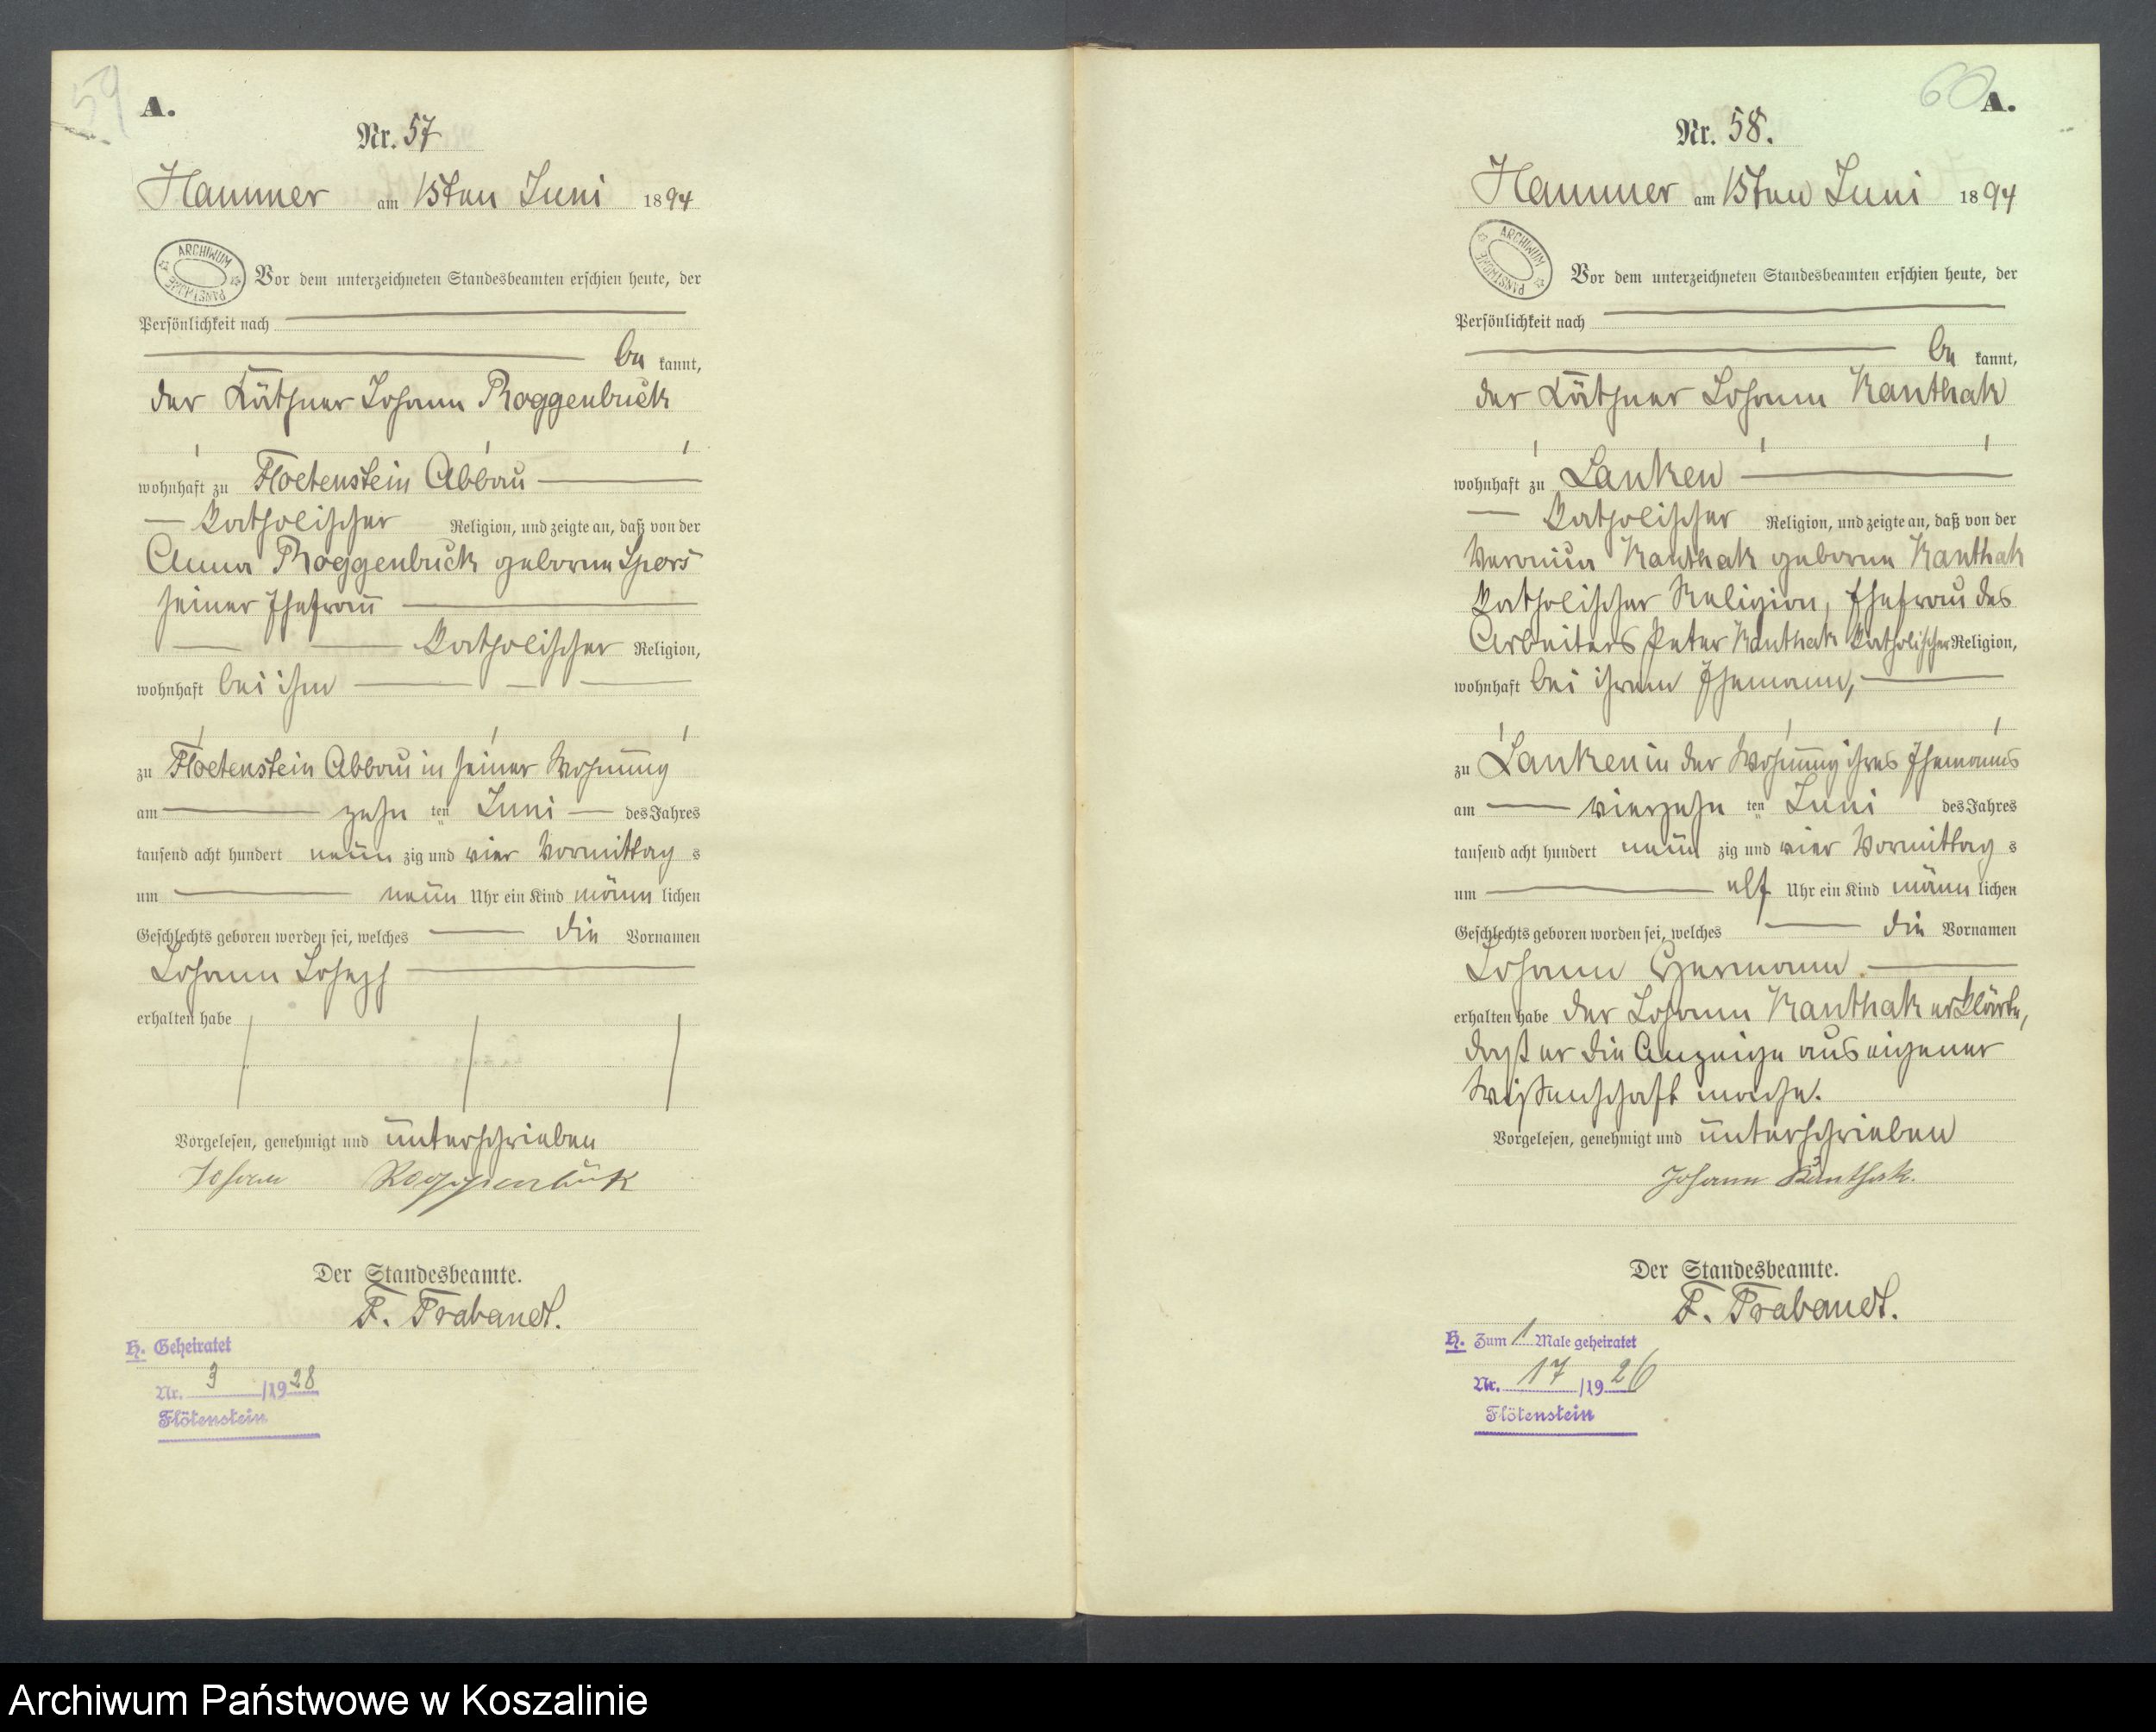 59
A.
Nr. 57
Hammer am 15ten Juni 1894
ARCHIWUM PAŃSTWOWE
Vor dem unterzeichneten Standesbeamten erschien heute, der
Persönlichkeit nach
be kannt,
der Käthner Johann Roggenbuck
wohnhaft zu Floetenstein Abbau
katholischer Religion, und zeigte an, daß von der
Anna Roggenbuck geborne Spors
seiner Ehefrau
katholischer Religion,
wohnhaft bei ihm
zu Floetenstein Abbau in seiner Wohnung
am zehn ten Juni des Jahres
tausend acht hundert neun zig und vier Vormittag s
um neun Uhr ein Kind männ lichen
Geschlechts geboren worden sei, welches die Vornamen
Johann Joseph
erhalten habe
Vorgelesen, genehmigt und unterschrieben
Johann Roggenbuk
Der Standesbeamte.
F. Trabandt.
H. Geheiratet
Nr. 3 /1928
Flötenstein
60
A.
Nr. 58.
Hammer am 15ten Juni 1894
ARCHIWUM PAŃSTWOWE
Vor dem unterzeichneten Standesbeamten erschien heute, der
Persönlichkeit nach
be kannt,
der Käthner Johann Kanthak
wohnhaft zu Lanken
katholischer Religion, und zeigte an, daß von der
Veronica Kanthak geborne Kanthak
katholischer Religion, Ehefrau des
Arbeiters Peter Kanthak katholischer Religion,
wohnhaft bei ihrem Ehemann,
zu Lanken in der Wohnung ihres Ehemanns
am vierzehn ten Juni des Jahres
tausend acht hundert neun zig und vier Vormittag s
um elf Uhr ein Kind männ lichen
Geschlechts geboren worden sei, welches die Vornamen
Johann Hermann.
erhalten habe der Johann Kanthak erklärte,
daß er die Anzeige aus eigener
Wißenschaft mache.
Vorgelesen, genehmigt und unterschrieben
Johann Kanthak.
Der Standesbeamte.
F. Trabandt.
H. Zum 1 Male geheiratet
Nr. 17 /1926
Flötenstein
Archiwum Państwowe w Koszalinie